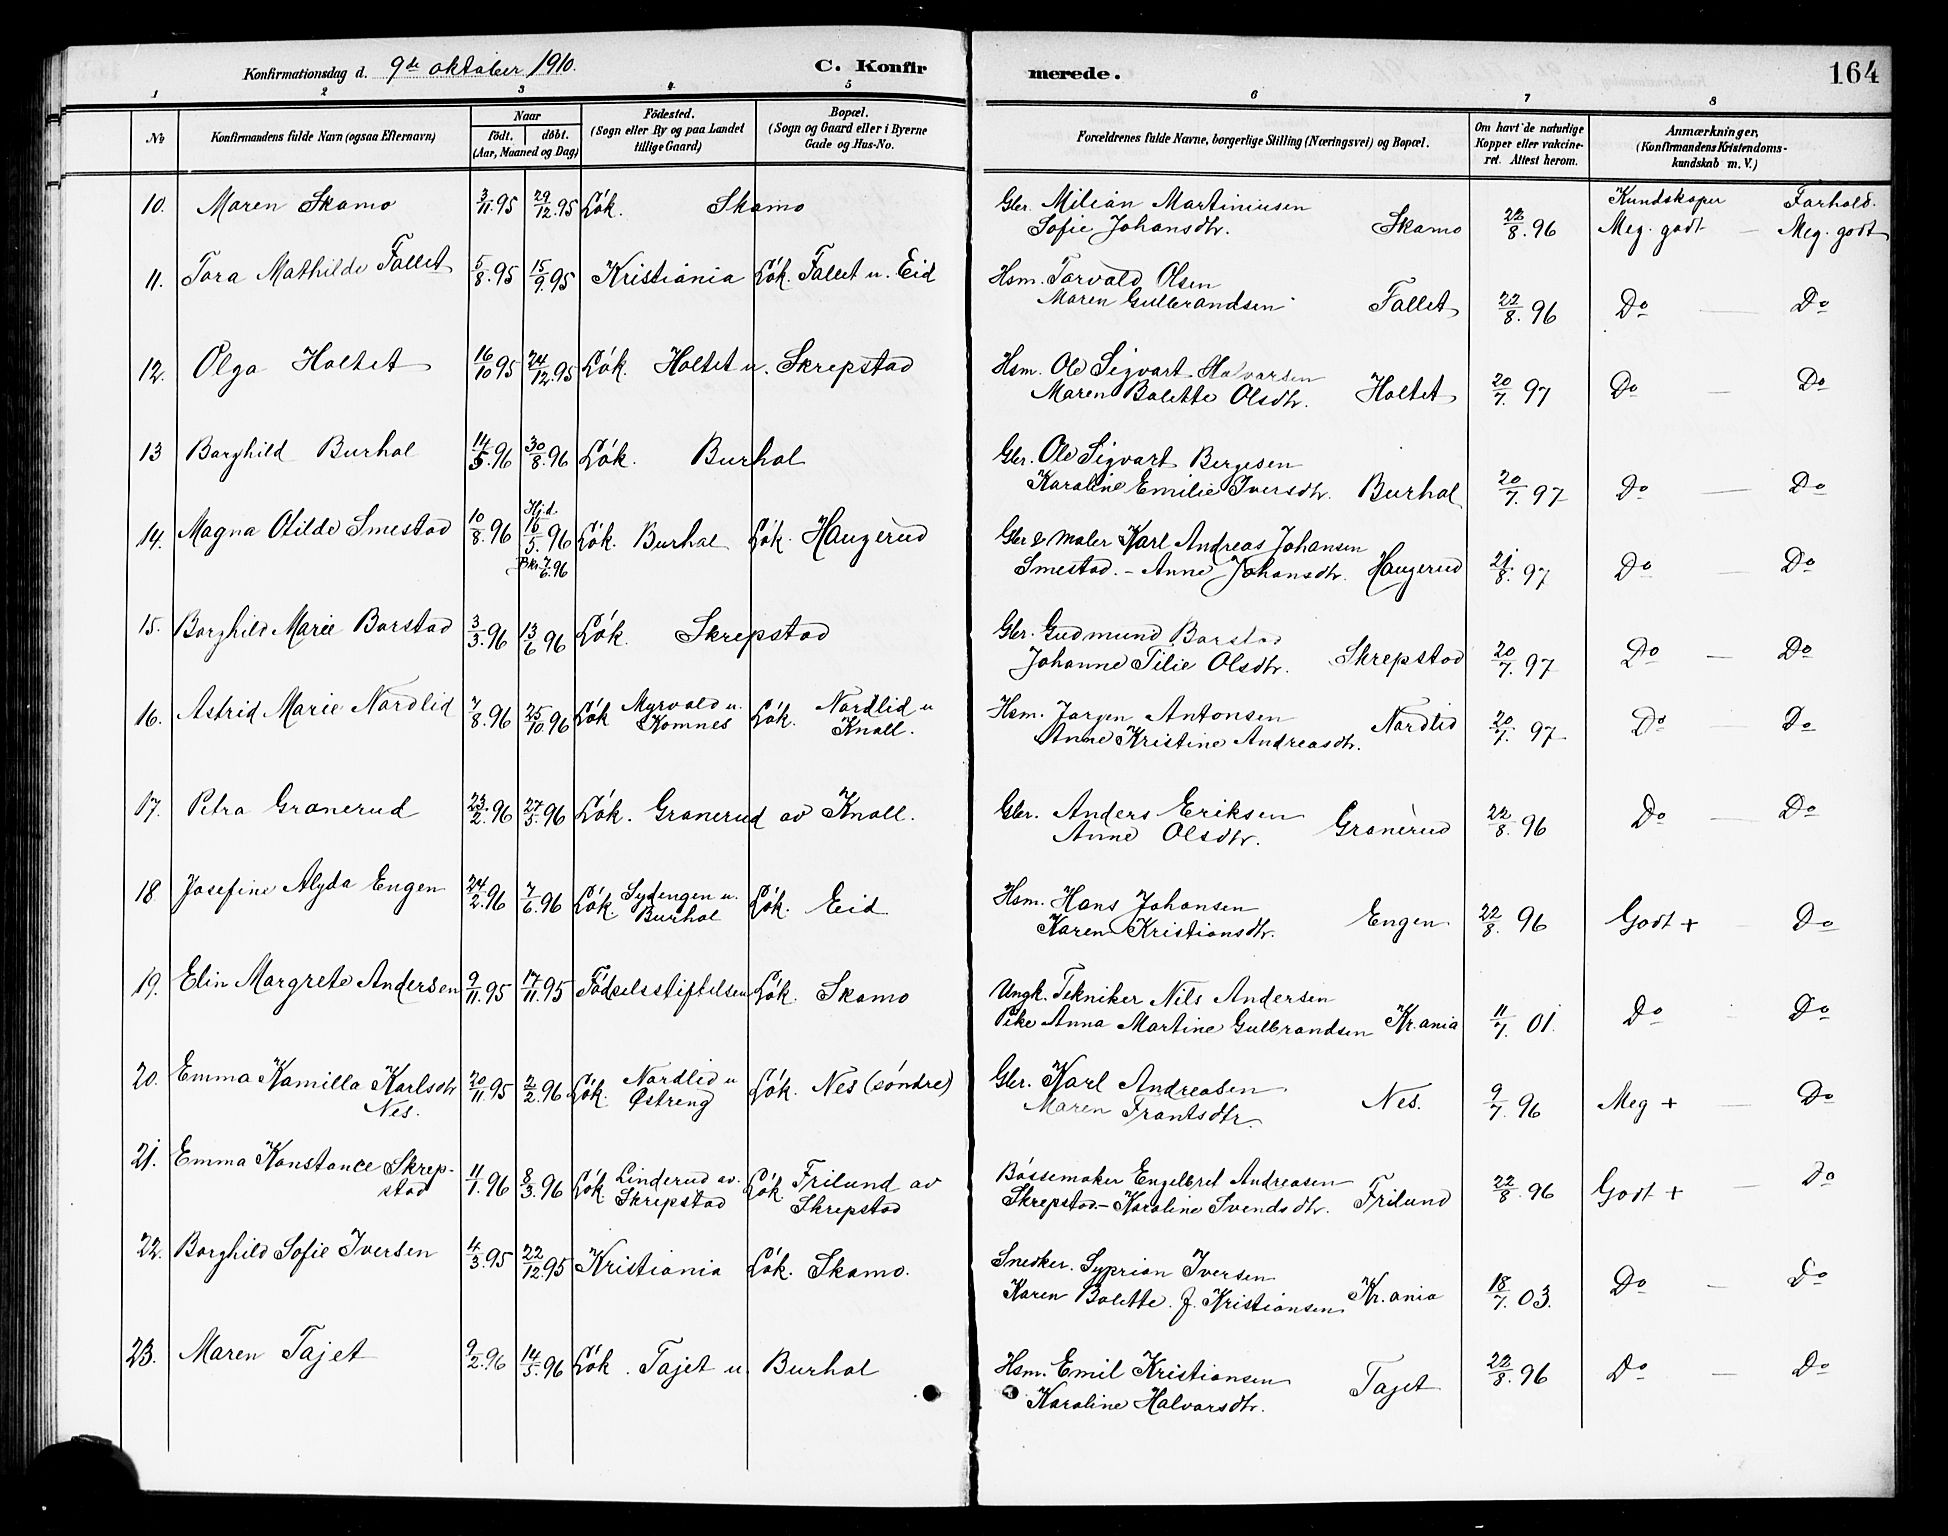 Konfirmationsdag d. 9de oktober 1910.
C. Konfirmerede.
164
1 2 3 4 5 6 7 8
No
Konfirmandens fulde Navn (ogsaa Efternavn)
Naar
födt. döbt.
(Aar, Maaned og Dag)
Födested.
(Sogn eller By og paa Landet
tillige Gaard)
Bopæl.
(Sogn og Gaard eller i Byerne
Gade og Hus-No.
Forældrenes fulde Navne, borgerlige Stilling (Næringsvei) og Bopæl.
Om havt de naturlige
Kopper eller vakcine-
ret. Attest herom.
Anmærkninger,
(Konfirmandens Kristendoms-
kundskab m. V.)
Kundskaper Forhold.
10. Maren Skamo 3/11.95 29/12.95 Løk. Skamo Gbr. Milian Martiniusen
Sofie Johansdtr. Skamo 22/8.96 Meg. godt — Meg. godt
11. Tora Mathilde Fallet 5/8.95 15/9.95 Kristiania Løk. Fallet u. Eid Hsm. Torvald Olsen
Maren Gulbrandsen Fallet 22/8.96 Do — Do
12. Olga Holtet 16/10 95 24/12.95 Løk. Holtet u. Skrepstad Hsm. Ole Sigvart Halvorsen
Maren Bolette Olsdtr. Holtet 20/7. 97 Do — Do
13 Borghild Burhol 14/5.96 30/8.96 Løk. Burhol Gbr. Ole Sigvart Bergesen
Karoline Emilie Iversdtr. Burhol 20/7.97 Do — Do
14. Magna Otilde Smestad 10/8.96 Hj.d. 16/5.96 Løk. Burhol Løk. Haugerud Gbr & Maler Karl Andreas Johansen
Bkr. 7/6.96 Smestad. - Anne Johansdtr. Haugerud 21/8.97 Do — Do
15. Borghild Marie Borstad 3/3.96 13/6 96 Løk. Skrepstad Gbr. Gudmund Borstad
Johanne Tilie Olsdtr. Skrepstad 20/7.97 Do — Do
16. Astrid Marie Nordlid 7/8.96 25/10.96 Løk Myrvold u. Komnes Løk. Nordlid u Knoll. Hsm. Jørgen Antonsen
Anne Kristine Andreasdtr. Nordlid 20/7. 97 Do — Do
17. Petra Granerud 23/2.96 27/5.96 Løk. Granerud av Knoll. Gbr. Anders Eriksen
Anne Olsdtr. Granerud 22/8.96 Do — Do
18 Josefine Alyda Engen 24/2.96 7/6.96 Løk. Sydengen u. Burhol Løk. Eid Hsm. Hans Johansen
Karen Kristiansdtr. Engen 22/8. 96 Godt + — Do
19. Elin Margrete Andersen 9/11.95 17/11.95 Fødselsstiftelsen Løk. Skamo Ungk. Tekniker Nils Andersen
Pike Anna Martine Gulbrandsen Kr.ania 11/7. 01. Do Do
20. Emma Kamilla Karlsdtr
Nes. 20/11.95 2/2.96 Løk. Nordlid u Østreng Løk. Nes (søndre) Gbr. Karl Andreasen
Maren Frantsdtr. Nes. 9/7.96 Meg + — Do
21. Emma Konstance Skrep-
stad 11/1.96 8/3.96 Løk. Linderud av. Skrepstad Løk. Frilund av Skrepstad Bøssemaker Engelbret Andreasen
Skrepstad.- Karoline Svendsdtr. Frilund 22/8.96 Godt + — Do
22. Borghild Sofie Iversen 4/3.95 22/12.95 Kristiania Løk. Skamo. Snedker. Syprian Iversen
Karen Bolette. f. Kristiansen Kr.ania 18/7.03. Do — Do
23. Maren Tajet 9/2.96 14/5.96 Løk. Tajet u. Burhol Hsm. Emil Kristiansen
Karoline Halvorsdtr. Tajet 22/8.96 Do — Do